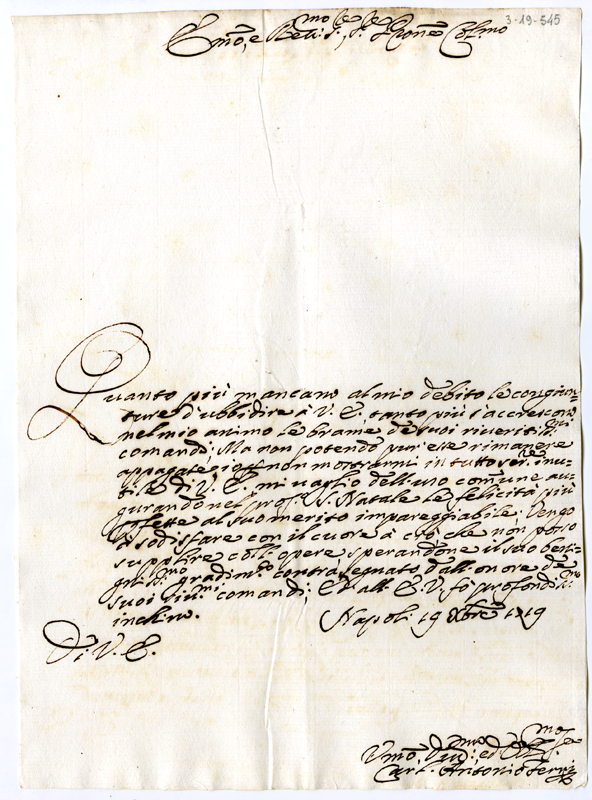 3-19-545
Emo, e Reu.mo Sre, Sre Prone Col.mo
Quanto più mancano al mio debito le congiun-
ture d'ubbidire à V. E. tanto più s'accrescono
nel mio animo le brame de suoi riueriti.mi
comandi; Ma non potendo pur esse rimanere
appagate, non mostrarmi in tutto ser.re inu-
tile di V. E. mi uaglio dell'uso comune au-
gurandonel pros.o S. Natale le felicità più
perfette al suo merito impareggiabile; Vengo
à sodisfare con il cuore à ciò, che non posso
supplire coll'opere sperandone il suo beni-
gnis.mo gradim.to contrasegnato dall'onore de
suoi riu.mi comandi; Ed all'E. V. fò profondis.mo
inchino. Napoli 19 Xbre 1719
Di V. E.
Vmo, Diu.mo ed Obl.mo Sre
Carl. Antonio